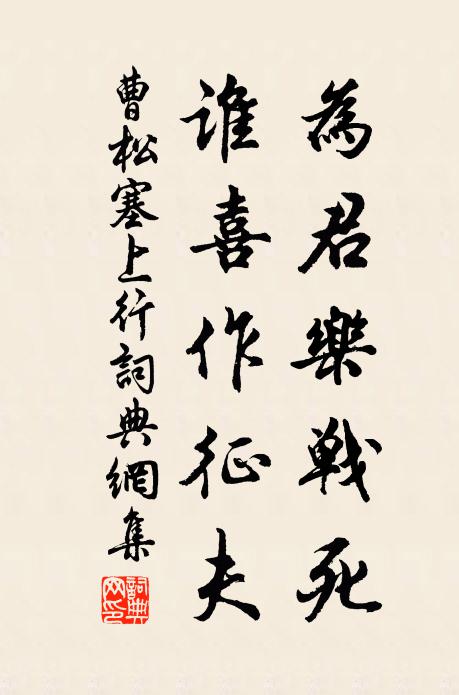 為君樂戰死
誰喜作征夫
曹松塞上行詞典網集
詞典網印